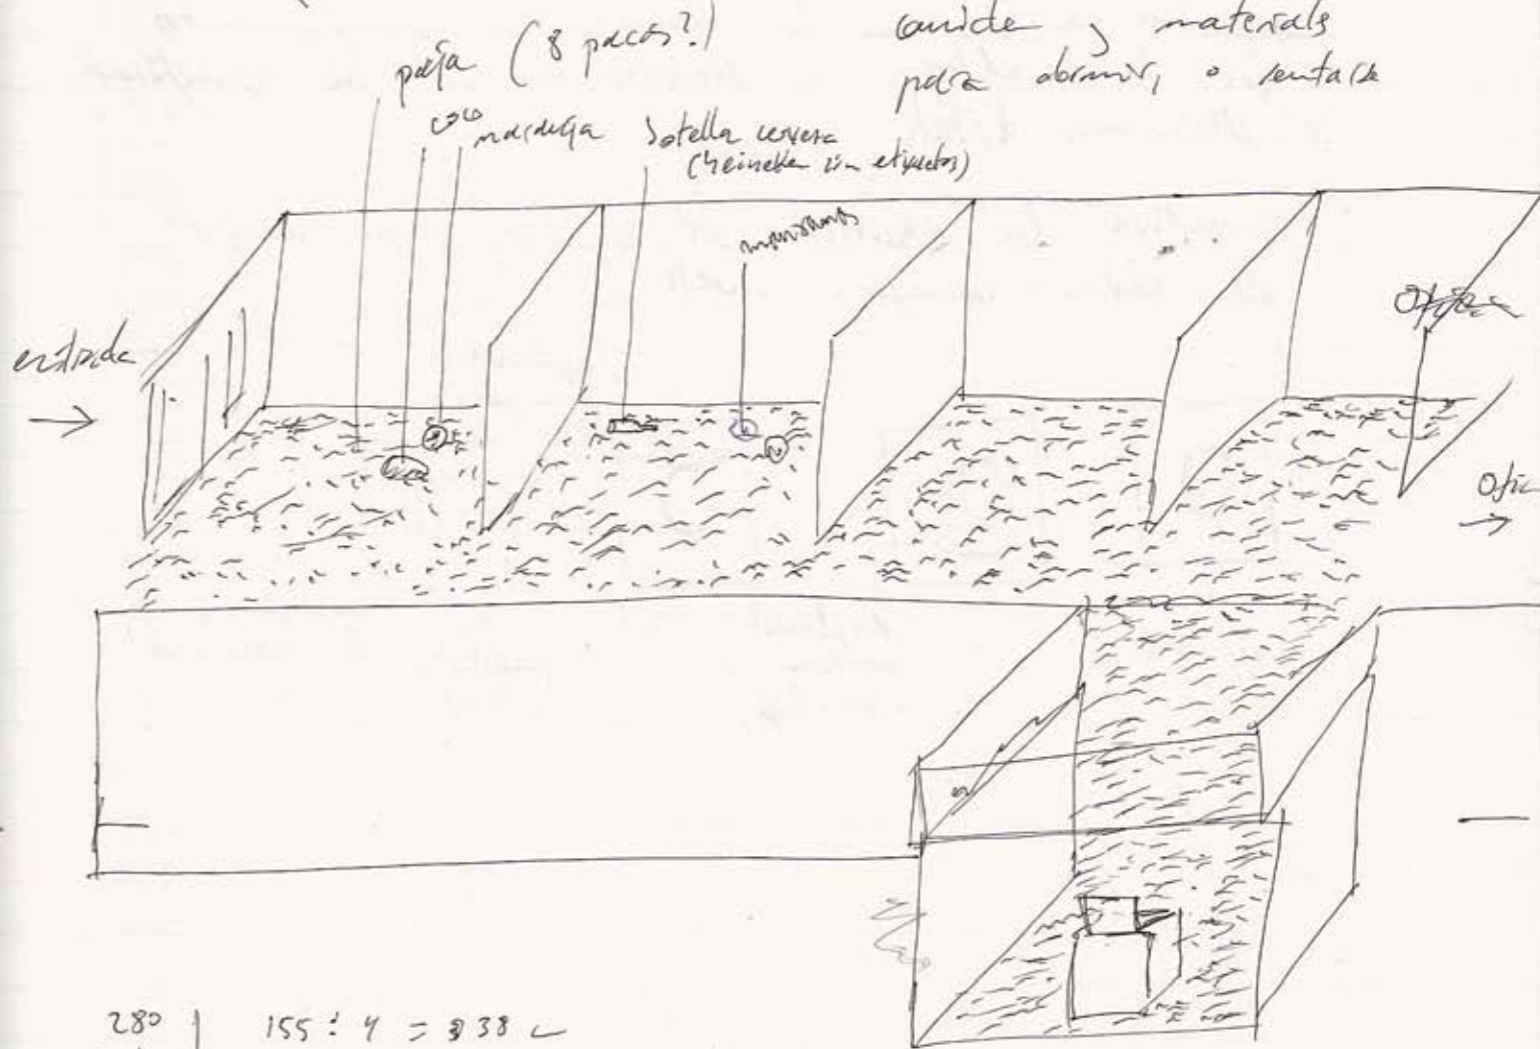 paja (8 pacas?)
comida y materials
para dormir, o sentarse
coco
naranja
botella cerveza
(heineken sin etiquetas)
manzanas
entrada
→
Ofic
→
280
155 ÷ 4 = 38